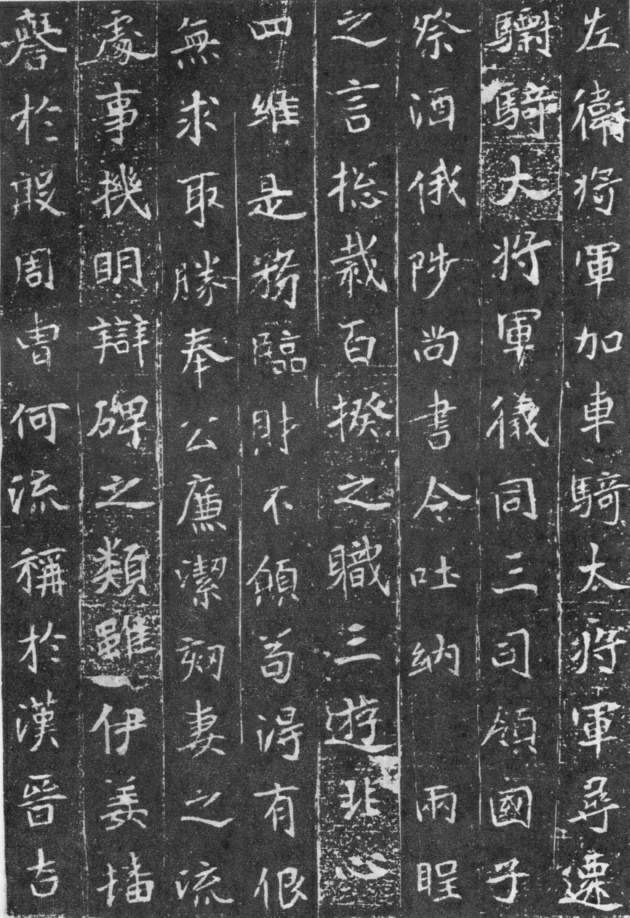 左衛將軍加車騎太將軍尋遷
驃騎大將軍儀同三司領國子
祭酒俄陟尚書令吐納雨
之言捴裁百揆之職三遊非心
四維是務臨財不傾苟淂有佷
無求取勝奉公廉潔妻之流
處事機明辯碑之類雖伊姜播
譽於殷周曹何流稱於漢晉古